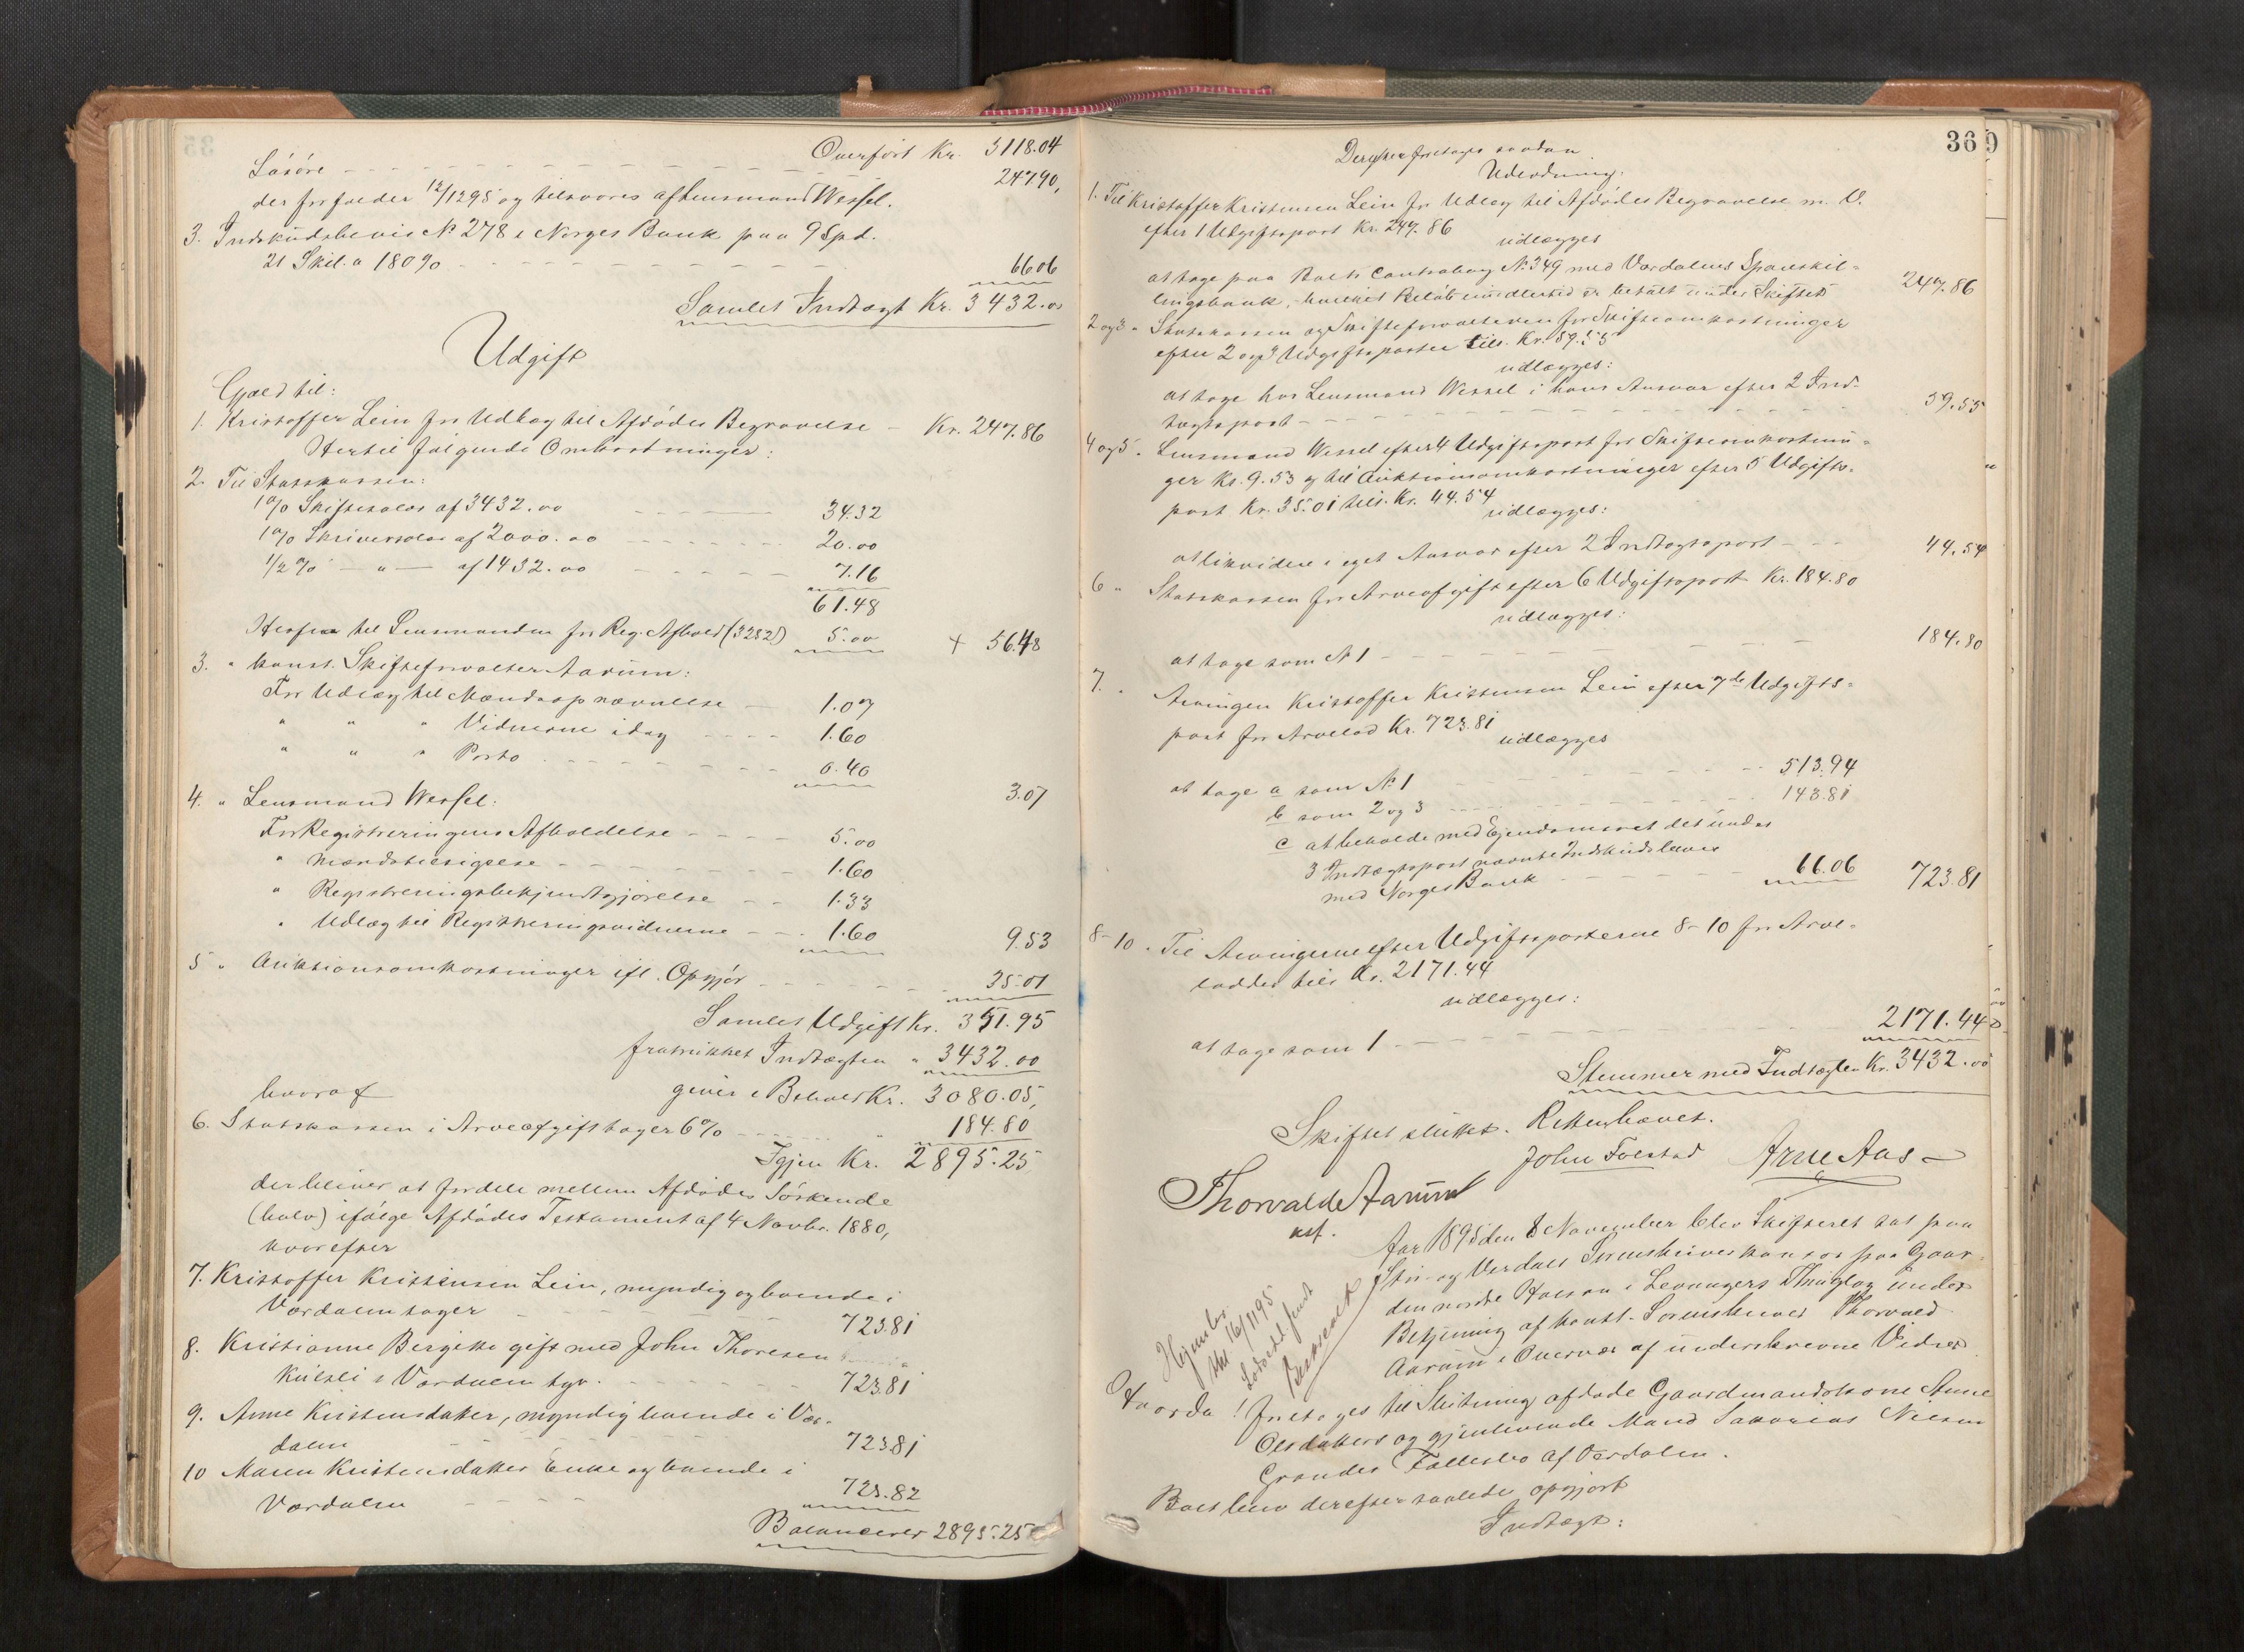 Overført Kr. 3118.04
Løsøre 247.90,
der forfalder 12/12 95 og tilsvares af Lensmand Wessel.
3. Indskudsbevis No 278 i Norges Bank paa 9 Spd.
21 Skil. a 180% 66.06
Samlet Indtægt Kr. 3432.00
Udgift
Gjæld til:
1. Kristoffer Lein for Udlæg til Afdødes Begravelse - Kr. 247.86
Hertil følgende Omkostninger:
2. Til Statskassen:
1% Skiftesalær af 3432.00 34.32
1% Skriversalær af 2000.00 20.00
1/2% - " - af 1432.00 7.16
61.48
Herfra til Lensmanden for Reg. Afhold (3282) 5.00 + 56.48
3. " konst. Skifteforvalter Aarum:
For Udlæg til Mændsopnævnelse 1.07
" " " Vidnerne idag 1.60
" " " Porto 0.40
3.07
4. " Lensmand Wessel:
For Registreringens Afholdelse 5.00
" Mændstilsigelse 1.60
" Registreringsbekjendtgjørelse 1.33
" Udlæg til Registreringsvidnerne 1.60 9.53
5 " Auktionsomkostninger ifl. Opgjør 35.01
Samlet Udgift Kr. 351.95
fratrukket Indtægten " 3432.00
hvoraf giver i Behold Kr. 3080.05,
6. Statskassen i Arveafgift tager 6% " 184.80
Igjen Kr. 2895.25
der bliver at fordele mellem Afdødes Søskende
(halv) ifølge Afdødes Testament af 4 Novbr. 1880,
hvorefter
7. Kristoffer Kristensen Lein, myndig og boende i
Værdalen tager 723.81
8. Kristianne Bergitte gift med John Thoresen
Kulsli i Værdalen tgr. 723.81
9. Anne Kristensdatter, myndig boende i Vær-
dalen 723.81
10 Maren Kristensdatter Enke og boende i
Værdalen 723.82
Balancerer 2895.25
36
Derefter foretages saadan
Udlodning:
1. Til Kristoffer Kristensen Lein for Udlæg til Afdødes Begravelse m. V.
efter 1 Udgiftspost Kr. 247.86
udlægges
at tage paa Boets Contrabog No 349 med Værdalens Spareskil-
lingsbank, hvilket Beløb imidlertid er betalt under Skiftet 247.86
2 og 3 " Statskassen og Skifteforvalteren for Skifteomkostninger
efter 2 og 3 Udgiftsposter tils. Kr. 59.55
udlægges:
at tage hos Lensmand Wessel i hans Ansvar efter 2 Ind-
tægtspost 59.55
4 og 5 " Lensmand Wessel efter 4 Udgiftspost for Skifteomkostnin-
ger Kr. 9.53 og til Auktionsomkostninger efter 5 Udgifts-
post Kr. 35.01 tils. Kr. 44.54
udlægges:
at likvidere i eget Ansvar efter 2 Indtægtspost 44.54
6 " Statskassen for Arveafgift efter 6 Udgiftspost Kr. 184.80
udlægges:
at tage som No 1 184.80
7. " Arvingen Kristoffer Kristensen Lein efter 7de Udgifts-
post for Arvelod Kr. 723.81
udlægges
at tage a som No 1 513.94
b som 2 og 3 143.81
c at beholde med Ejendomsret det under
3 Indtægtspost nævnte Indskudsbevis
med Norges Bank 66.06 723.81
8-10 " Til Arvingerne efter Udgiftsposterne 8-10 for Arve-
lodder tils Kr. 2171.44
udlægges:
at tage som 1 2171.44
Stemmer med Indtægten Kr. 3432.00
Skiftet sluttet. Retten hævet.
Thorvald Aarum John Folstad Arne Aas
kst.
Aar 1895 den 8 November blev Skifteret sat paa
Stør- og Værdals Sorenskriverkontor paa Gaar-
den nordre Halsan i Levangers Thinglag under
Betjening af konst. Sorenskriver Thorvald
Aarum i Overvær af underskrevne Vidner.
Hvorda:
foretoges til Slutning afdøde Gaardmandskone Anne
Olsdatters og gjenlevende Mand Zakarias Nilsen
Grandes Fællesbo af Værdalen.
Boet blev derefter saaledes opgjort
Indtægt: